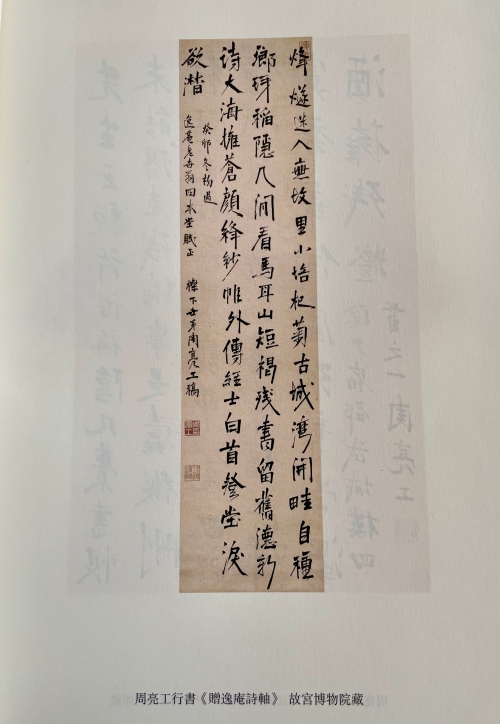 烽燧迷人無故里小杞菊古城灣開畦自種
瑯玡稻隱几閒看馬耳山短褐殘書留舊德新
詩大海擁蒼顏絳紗帷外傳經士白首登堂淚
欲潸
癸卯冬杪過
逸菴老世翁四本堂賦正
櫟下世弟周亮工稿
周亮工行書《贈逸庵詩軸》 故宮博物院藏